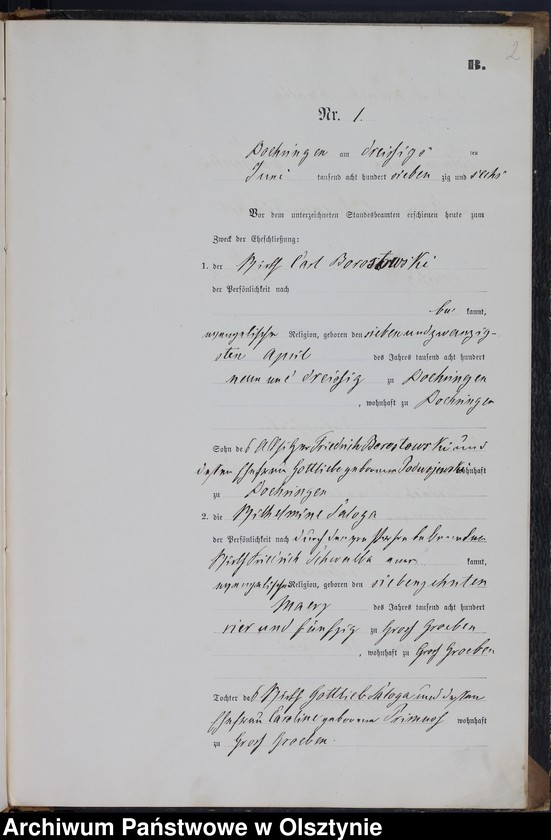 2
B.
Nr. 1.
Doehringen am dreißigs ten
Juni tausend acht hundert sieben zig und sechs
Vor dem unterzeichneten Standesbeamten erschienen heute zum
Zweck der Eheschließung:
1. der Wirth Carl Borostowski
der Persönlichkeit nach
be kannt,
evangelischer Religion, geboren den sieben und zwanzig-
sten April des Jahres tausend acht hundert
neun und dreißig zu Doehringen
, wohnhaft zu Doehringen
Sohn des Altsitzer Friedrich Borostowski und
dessen Ehefrau Gottliebe geborene Podwojewski wohnhaft
zu Doehringen
2. die Wilhelmine Saloga
der Persönlichkeit nach durch den von Person bekannten
Wirth Friedrich aner kannt,
evangelischer Religion, geboren den siebenzehnten
Maerz des Jahres tausend acht hundert
vier und fünfzig zu Groß Groeben
, wohnhaft zu Groß Groeben
Tochter des Wirth Gottlieb Saloga und dessen
Ehefrau Caroline geborene wohnhaft
zu Groß Groeben.
Archiwum Państwowe w Olsztynie